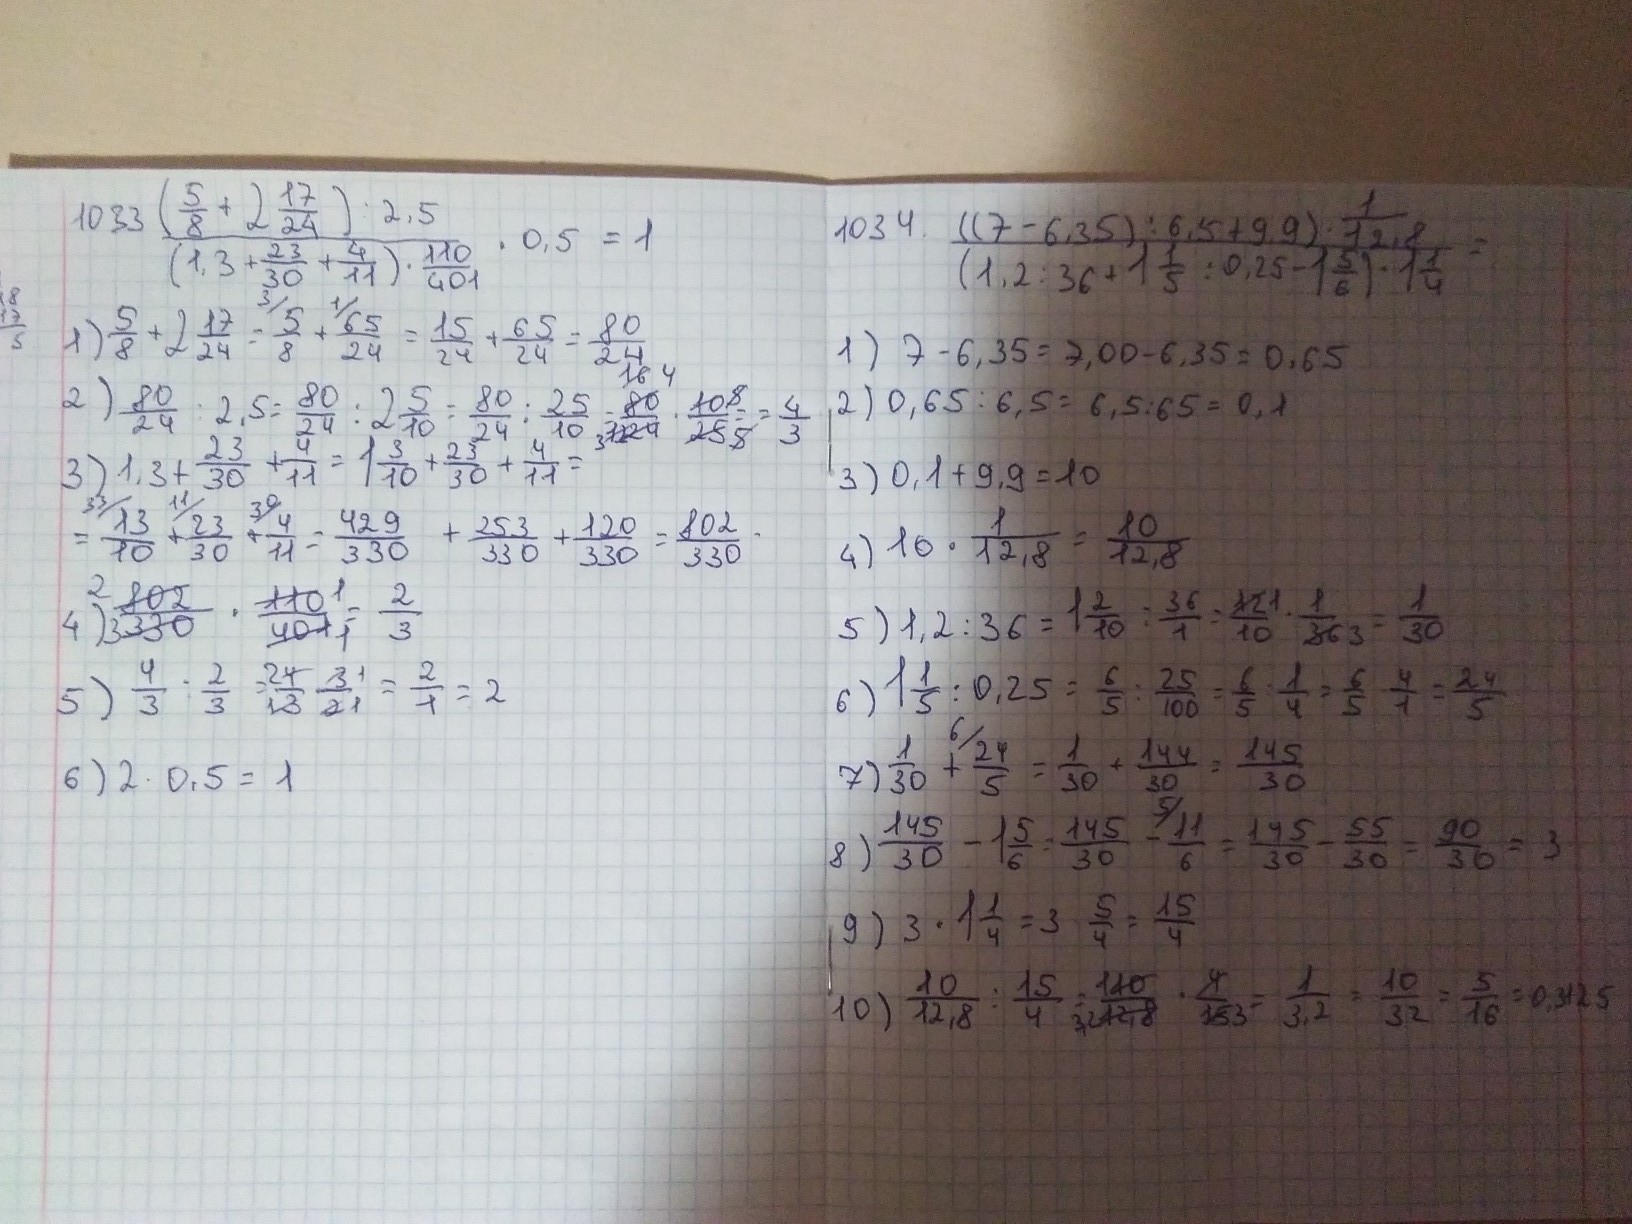 1033 (5/8 + 2 17/24) : 2,5 / (1,3 + 23/30 + 4/11) · 110/401 · 0,5 = 1
1) 5/8 + 2 17/24 = 3/ 5/8 + 1/ 65/24 = 15/24 + 65/24 = 80/24
2) 80/24 : 2,5 = 80/24 : 2 5/10 = 80/24 : 25/10 = 80/24 · 10/25 = 4/3
3) 1,3 + 23/30 + 4/11 = 1 3/10 + 23/30 + 4/11 =
= 33/ 13/10 + 11/ 23/30 + 30/ 4/11 = 429/330 + 253/330 + 120/330 = 802/330
4) 802/330 · 110/401 = 2/3
5) 4/3 : 2/3 = 4/3 3/2 = 2/1 = 2
6) 2 · 0,5 = 1
1034. ((7 - 6,35) : 6,5 + 9,9) · 1/12,8 / (1,2 : 36 + 1 1/5 : 0,25 - 1 5/6) · 1 1/4 =
1) 7 - 6,35 = 7,00 - 6,35 = 0,65
2) 0,65 : 6,5 = 6,5 : 65 = 0,1
3) 0,1 + 9,9 = 10
4) 10 · 1/12,8 = 10/12,8
5) 1,2 : 36 = 1 2/10 : 36/1 = 12/10 · 1/36 = 1/30
6) 1 1/5 : 0,25 = 6/5 : 25/100 = 6/5 : 1/4 = 6/5 4/1 = 24/5
7) 1/30 + 6/ 24/5 = 1/30 + 144/30 = 145/30
8) 145/30 - 1 5/6 = 145/30 - 5/ 11/6 = 145/30 - 55/30 = 90/30 = 3
9) 3 · 1 1/4 = 3 5/4 = 15/4
10) 10/12,8 : 15/4 = 10/12,8 · 4/15 = 1/3,2 = 10/32 = 5/16 = 0,3125